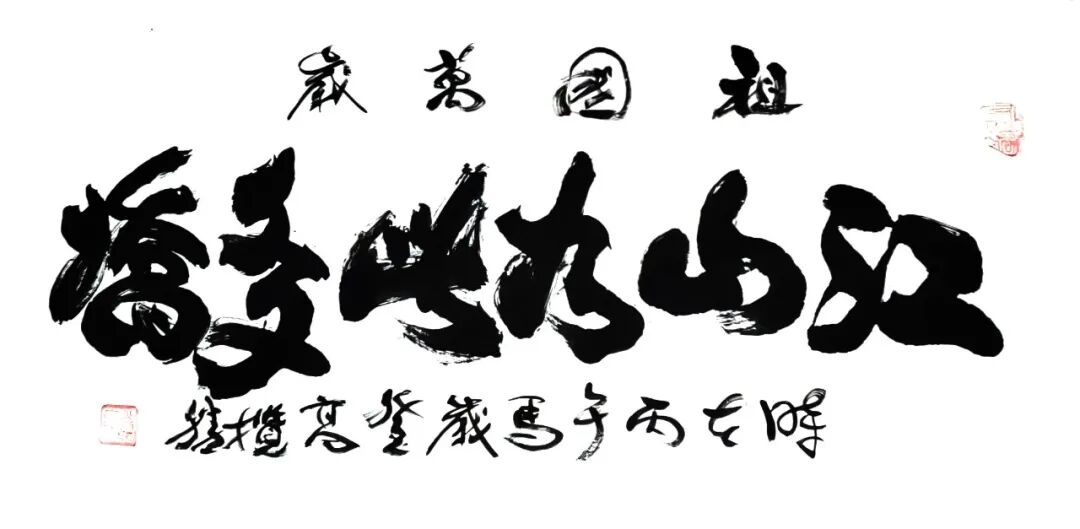 祖國萬歲
江山如此多嬌
時在丙午馬歲登高攬勝